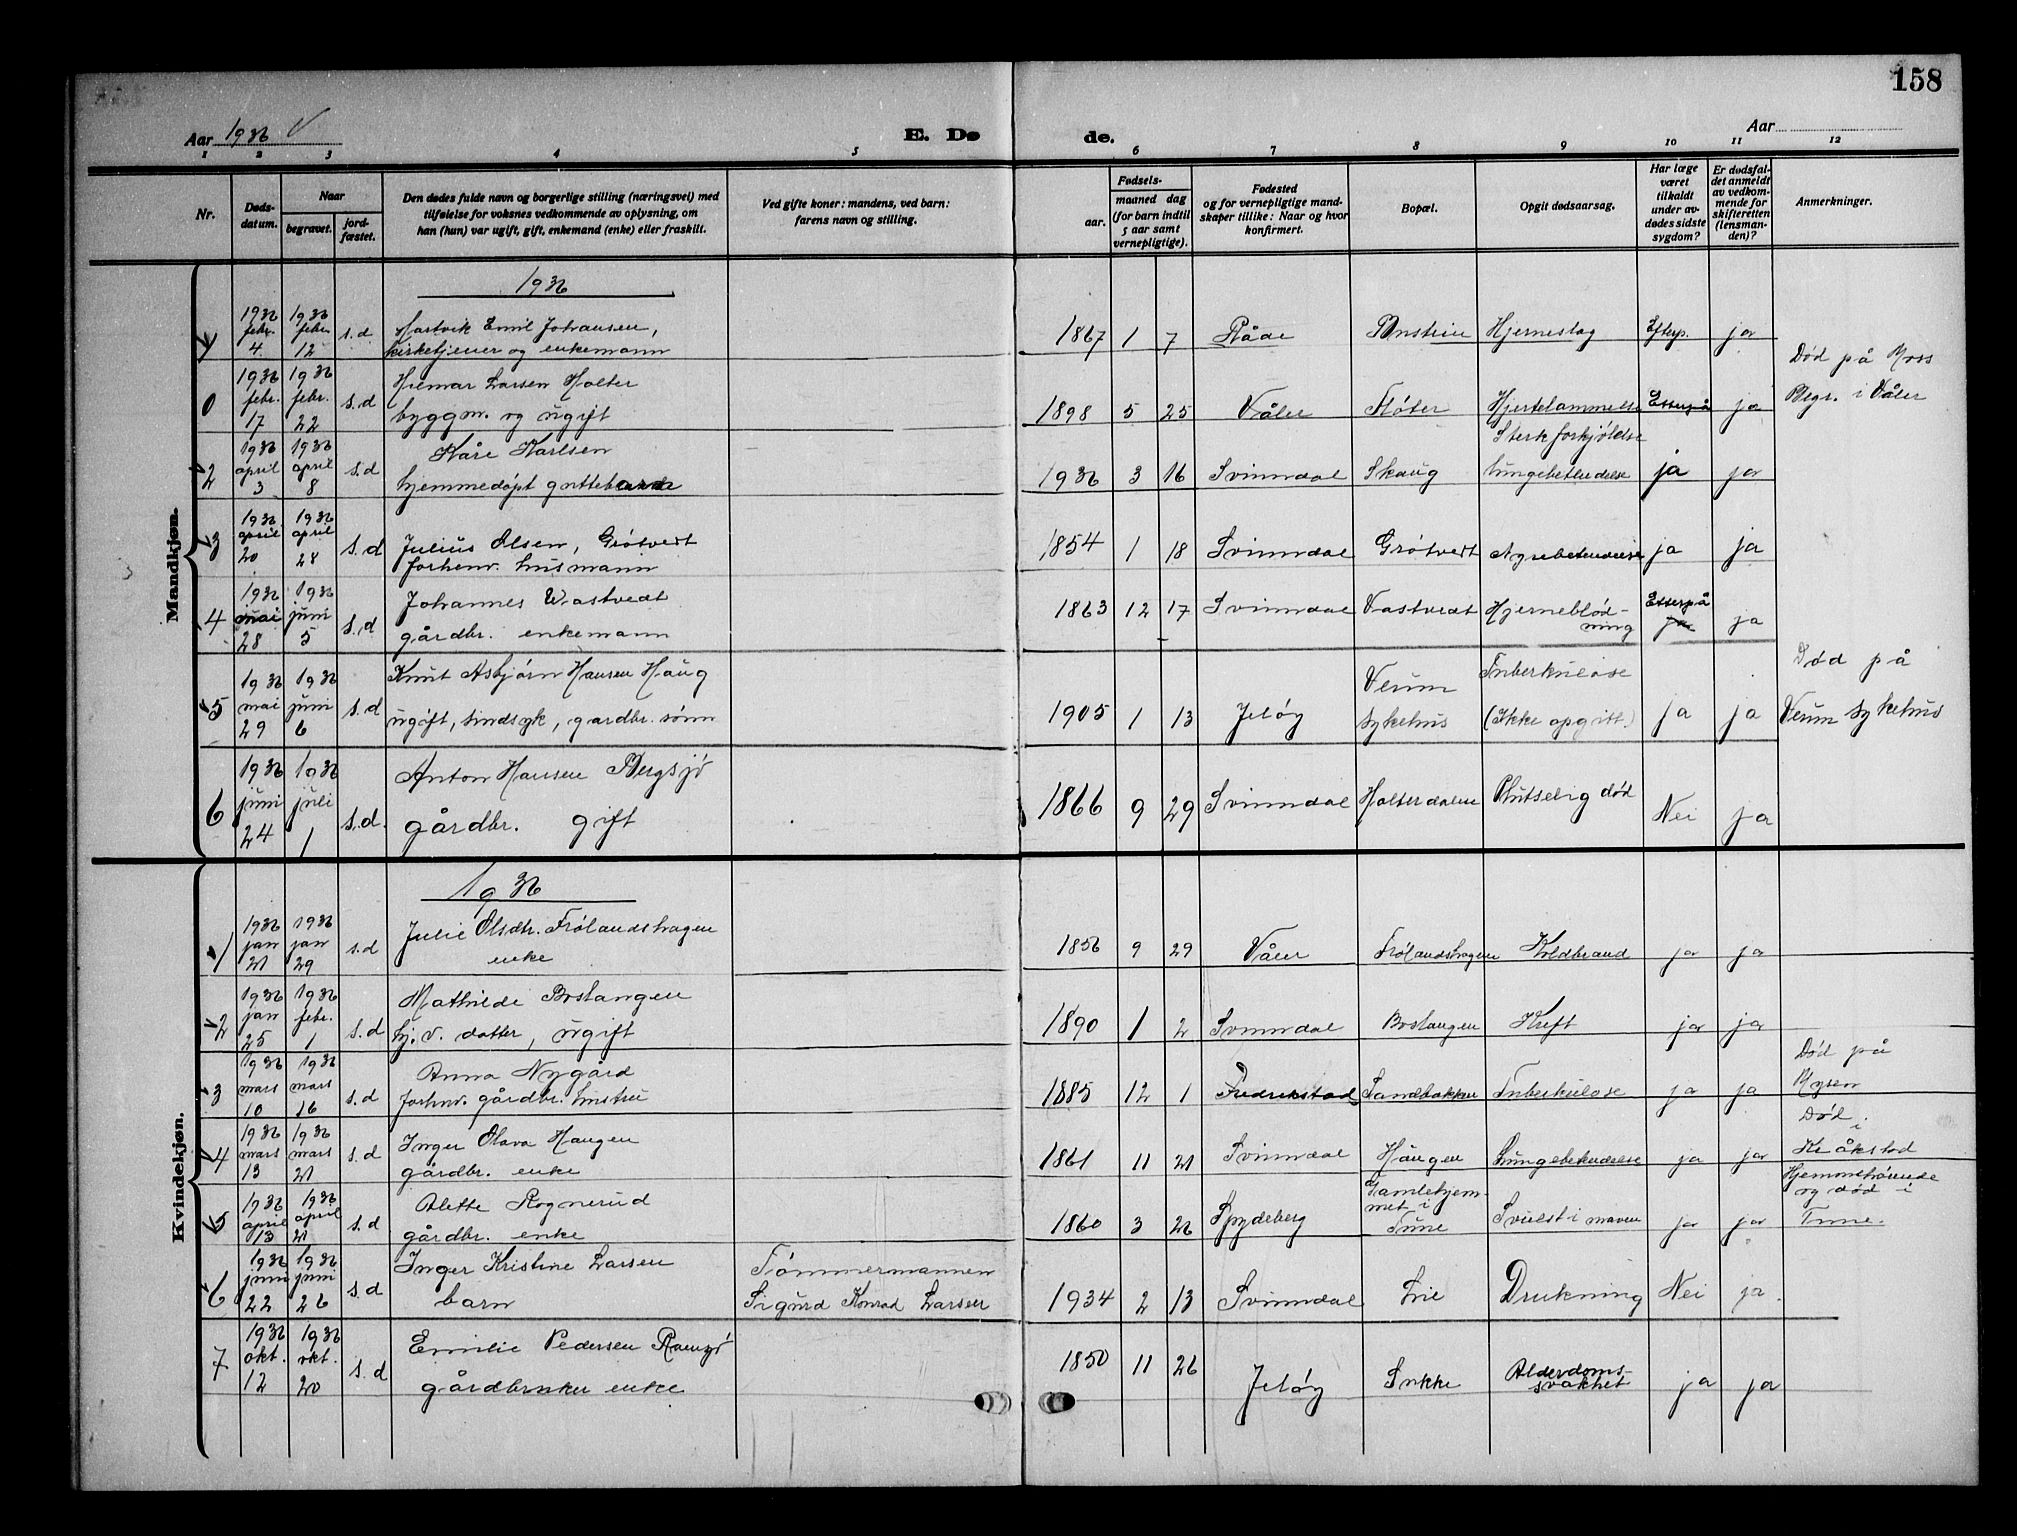 158
Aar 1936
E. Døde.
Aar
1 2 3 4 5 6 7 8 9 10 11 12
Nr.
Døds-
datum.
Naar
begravet.
jord-
fæstet.
Den dødes fulde navn og borgerlige stilling (næringsvei) med
tilføielse for voksnes vedkommende av oplysning, om
han (hun) var ugift, gift, enkemand (enke) eller fraskilt.
Ved gifte koner: mandens, ved barn:
farens navn og stilling.
Fødsels-
aar.
maaned dag
(for barn indtil
5 aar samt
vernepligtige).
Fødested
og for vernepligtige mand-
skaper tillike: Naar og hvor
konfirmert.
Bopæl.
Opgit dødsaarsag.
Har læge
været
tilkaldt
under av-
dødes sidste
sygdom?
Er dødsfal-
det anmeldt
av vedkom-
mende for
skifteretten
(lensman-
den)?
Anmerkninger.
Mandkjøn.
1936
1 1936 febr. 4 1936 febr. 12 s.d Hartvik Emil Johansen,
kirketjener og enkemann
1867 1 7 Råde Hjerneslag Efterp. ja
0 1936 febr. 17 1936 febr. 22 s.d Hilmar Larsen Holter
byggm. og ugift
1898 5 25 Våler Fløter Hjertelammelse Etterpå ja
Død på Moss
Begr. i Våler
2 1936 april 3 1936 april 8 s.d Kåre Karlsen
hjemmedøpt guttebarn
1936 3 16 Svinndal Skaug Sterk forkjølelse
lungebetendelse ja ja
3 1936 april 20 1936 april 28 s.d Julius Olsen, Grøtvedt
forhenv. husmann
1854 1 18 Svinndal Grøtvedt Nyrebetendelse ja ja
4 1936 mai 28 1936 juni 5 s.d Johannes Vastvedt
gårdbr. enkemann
1863 12 17 Svinndal Vastvedt Hjerneblød-
ning Etterpå ja
5 1936 mai 29 1936 juni 6 s.d Knut Asbjørn Hansen Haug
ugift, sindsyk, gardbr. sønn
1905 1 13 Jeløy Veum
sykehus Tuberkulose
(Ikke opgitt.) ja ja
Død på
Veum sykehus
6 1936 juni 24 1936 juli 1 s.d. Anton Hansen Bergsjø
gårdbr. gift
1866 9 29 Svinndal Holterdalen Plutselig død Nei ja
Kvindekjøn.
1936
1 1936 jan 21 1936 jan 29 s.d Julie Olsdtr. Frølandshagen
enke
1856 9 29 Våler Frølandshagen Koldbrand ja ja
2 1936 jan 25 1936 febr. 1 s.d Mathilde Boslangen
hj. v. datter, ugift
1890 1 2 Svinndal Boslangen Kreft ja ja
3 1936 mars 10 1936 mars 16 s.d Anna Nygård
forhnv. gårdbr. hustru
1885 12 1 Fredrikstad Sandbakken Tuberkulose ja ja
Død på
Mysen
4 1936 mars 13 1936 mars 21 s.d Inger Olava Haugen
gårdbr. enke
1861 11 21 Svinndal Haugen Lungebetendelse ja ja
Død i
Kråkstad
5 1936 april 13 1936 april 21 s.d Alette Rognerud
gårdbr. enke
1860 3 26 Spydeberg Gamlehjem-
met i
Tune Svulst i maven ja ja
Hjemmehørende
og død i
Tune.
6 1936 juni 22 1936 juni 26 s.d Inger Kristine Larsen
barn
Tømmermannen
Sigurd Konrad Larsen
1934 2 13 Svinndal Lie Drukning Nei ja.
7 1936 okt. 12 1936 okt. 20 s.d Emilie Pedersen
gårdbruker enke
1850 11 26 Jeløy Sukke Alderdoms-
svakhet ja ja